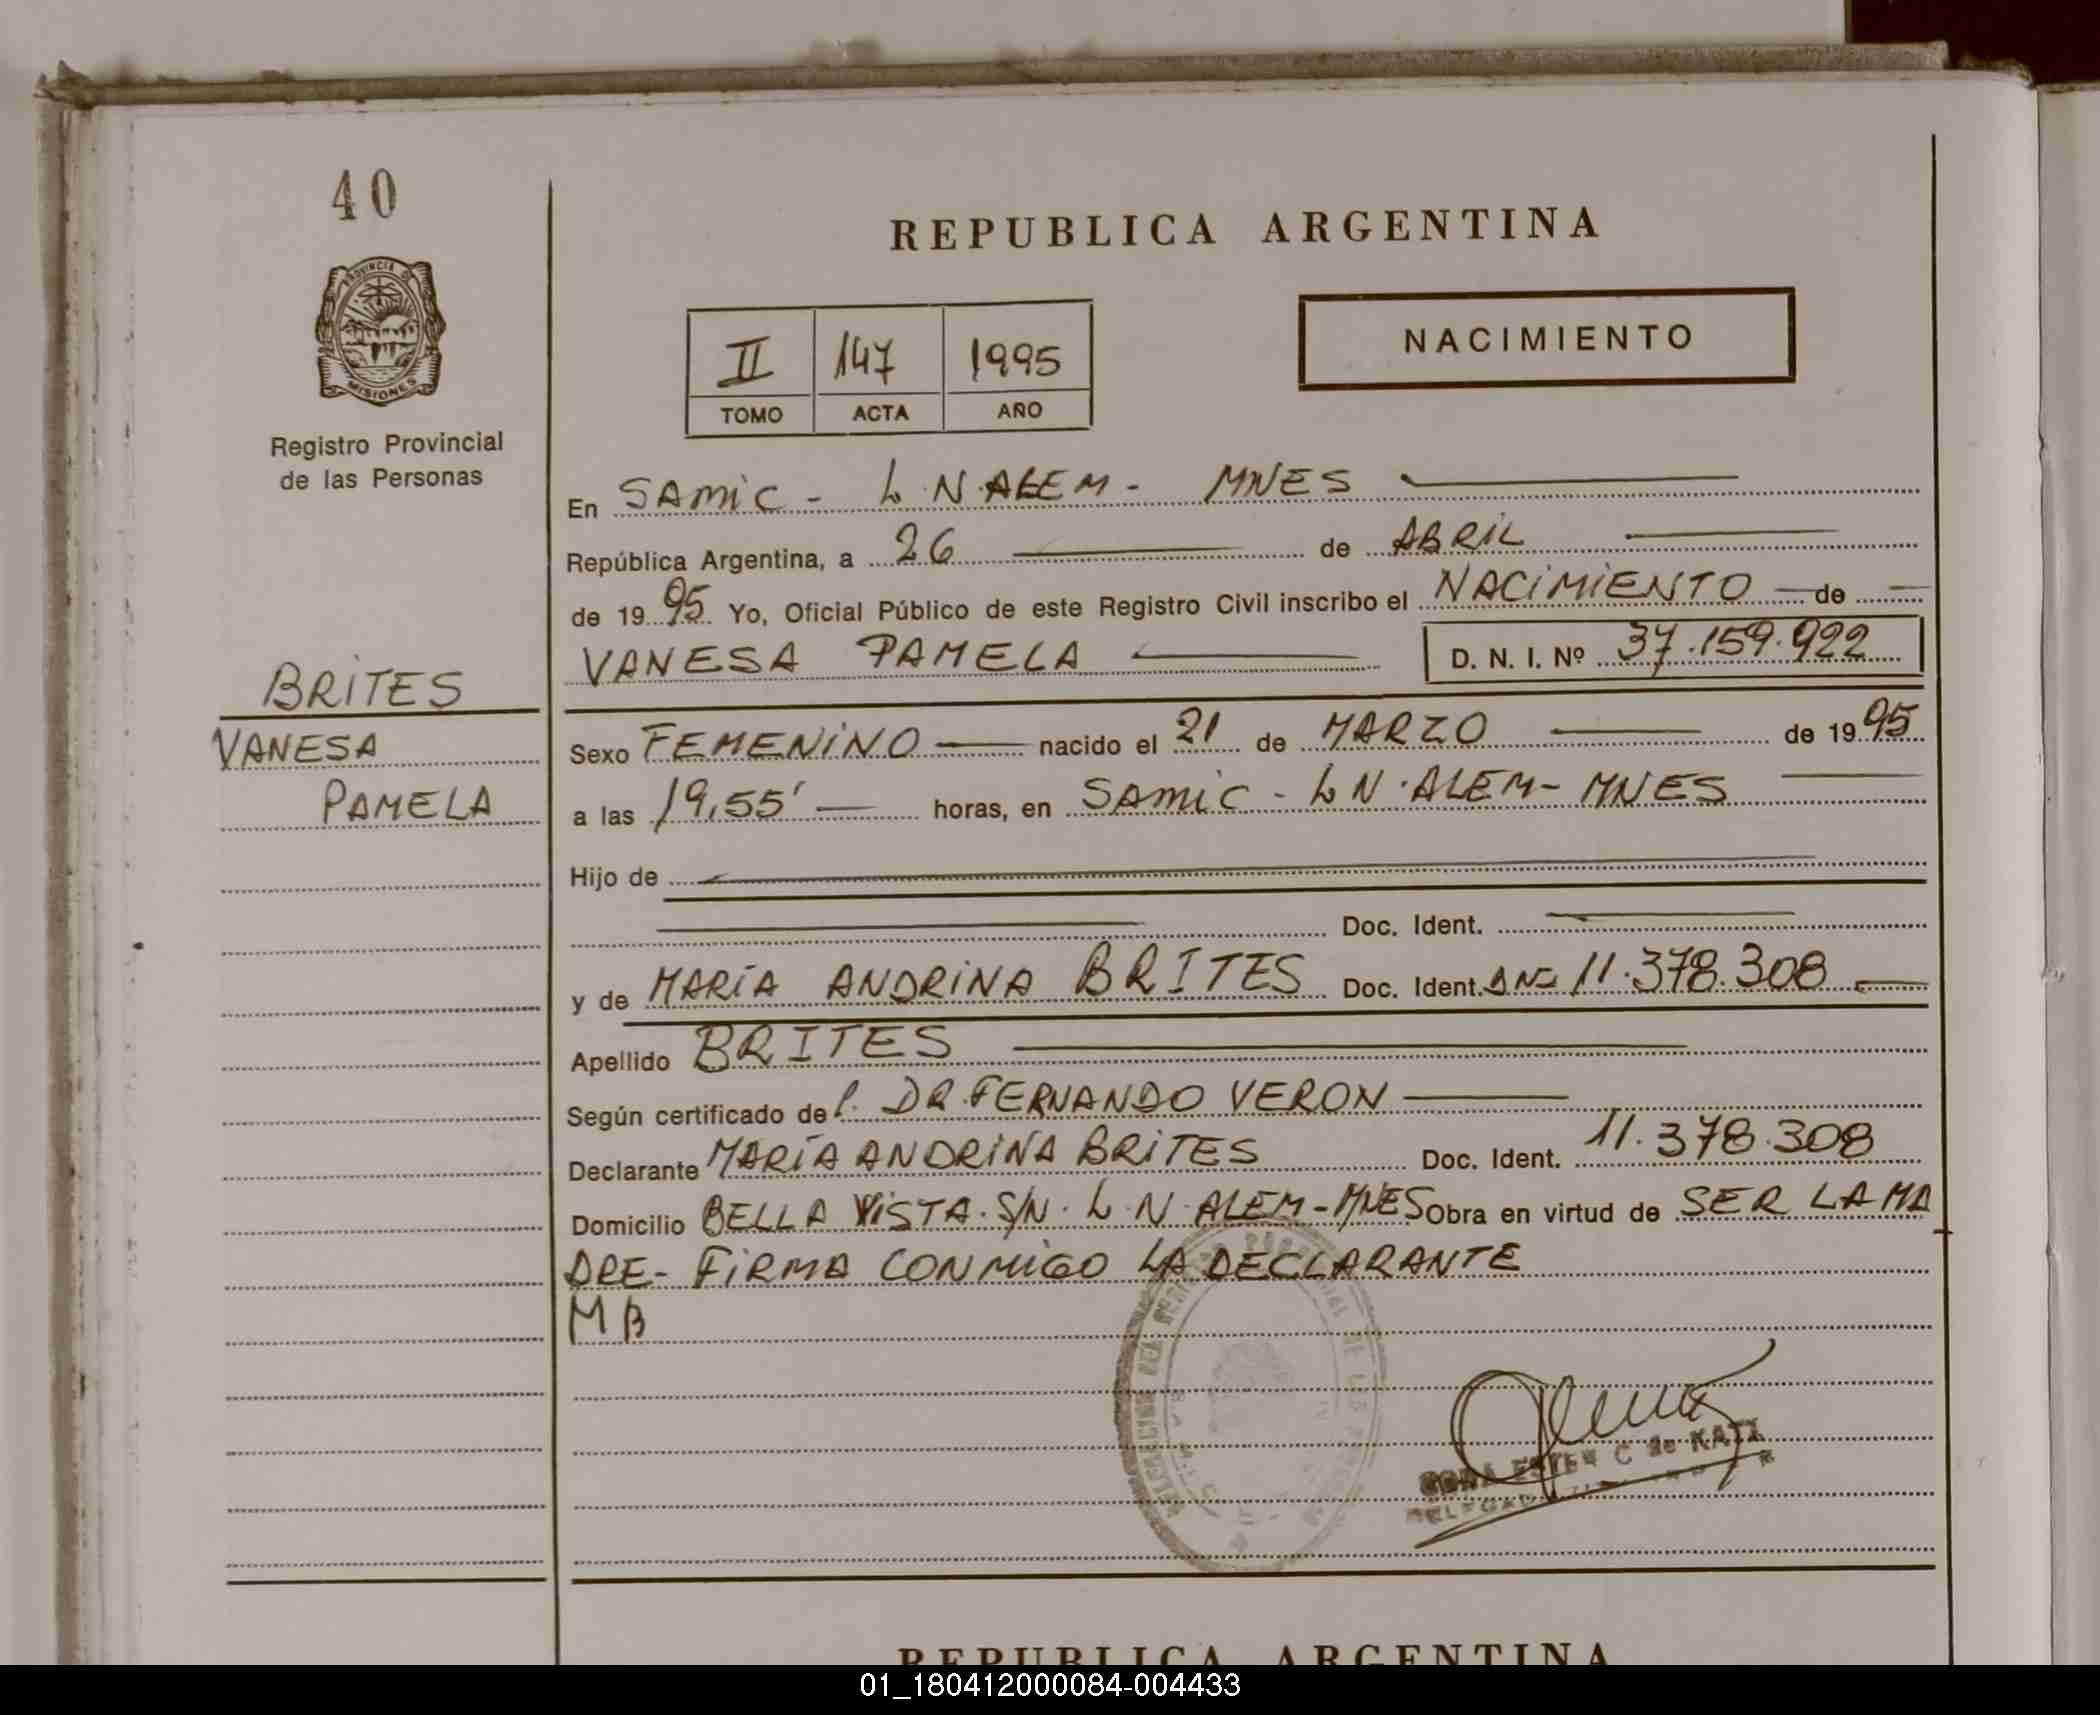 40
PROVINCIA DE
MISIONES
Registro Provincial
de las Personas
BRITES
VANESA
PAMELA
REPUBLICA ARGENTINA
II 147 1995
TOMO ACTA AÑO
NACIMIENTO
En SAMIC - L.N.ALEM - MNES
República Argentina, a 26 de ABRIL
de 1995 Yo, Oficial Público de este Registro Civil inscribo el NACIMIENTO de
VANESA PAMELA D. N. I. Nº 37.159.922
Sexo FEMENINO nacido el 21 de MARZO de 1995
a las 19,55' horas, en SAMIC - L N. ALEM - MNES
Hijo de
Doc. Ident.
y de MARÍA ANDRINA BRITES Doc. Ident. 11.378.308
Apellido BRITES
Según certificado del. DR. FERNANDO VERON
Declarante MARÍA ANDRINA BRITES Doc. Ident. 11.378.308
Domicilio BELLA VISTA. S/N. L.N. ALEM - MNES Obra en virtud de SER LA MA
DRE - FIRMA CONMIGO LA DECLARANTE
MB
ESTER C de
REPUBLICA ARGENTINA
01_180412000084-004433